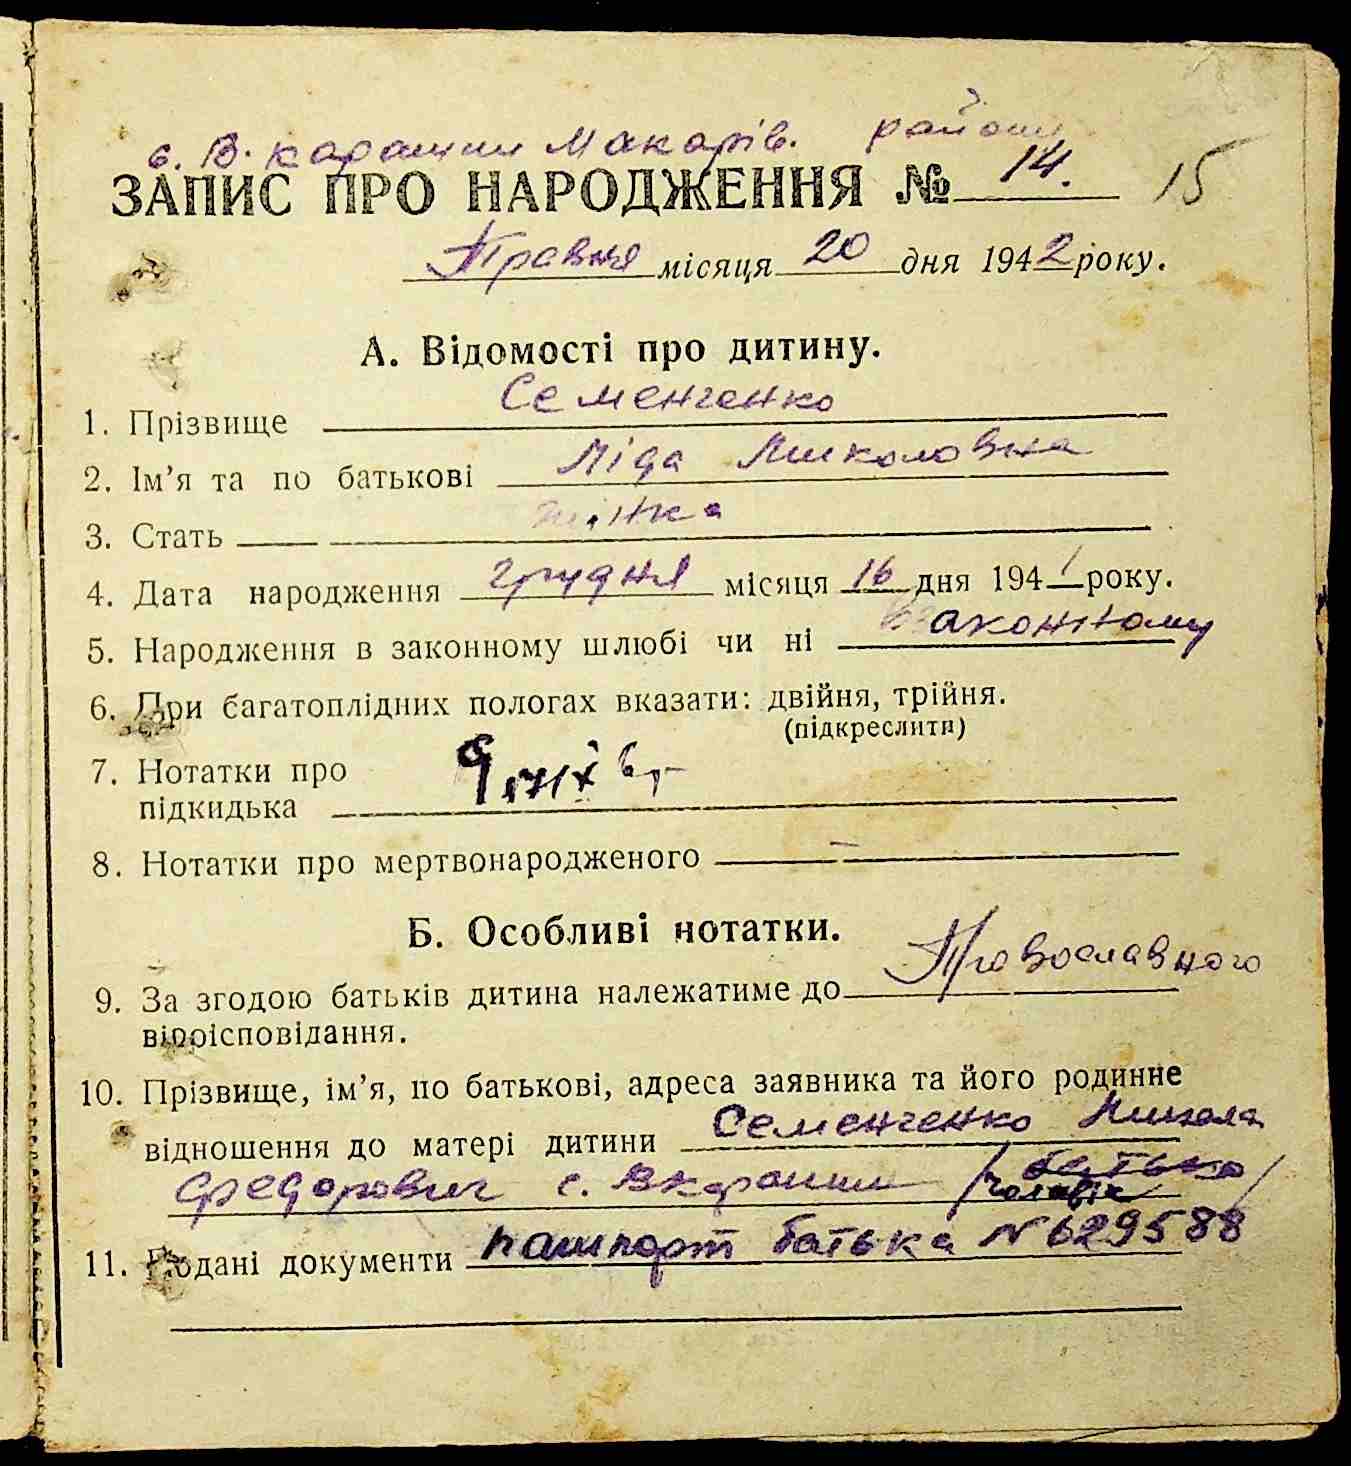 с. В. Карашин Макарів. району
ЗАПИС ПРО НАРОДЖЕННЯ № 14. 15
Травня місяця 20 дня 1942 року.
А. Відомості про дитину.
1. Прізвище Семенченко
2. Ім'я та по батькові Ліда Миколовна
3. Стать жінка
4. Дата народження грудня місяця 16 дня 1941 року.
5. Народження в законному шлюбі чи ні законному
6. При багатоплідних пологах вказати: двійня, трійня.
(підкреслити)
7. Нотатки про
підкидька
8. Нотатки про мертвонародженого —
Б. Особливі нотатки.
9. За згодою батьків дитина належатиме до Православного
віроісповідання.
10. Прізвище, ім'я, по батькові, адреса заявника та його родинне
відношення до матері дитини Семенченко Микола
Федорович с. Вкарашин /батько/
чоловік
11. Подані документи пашпорт батька № 629588